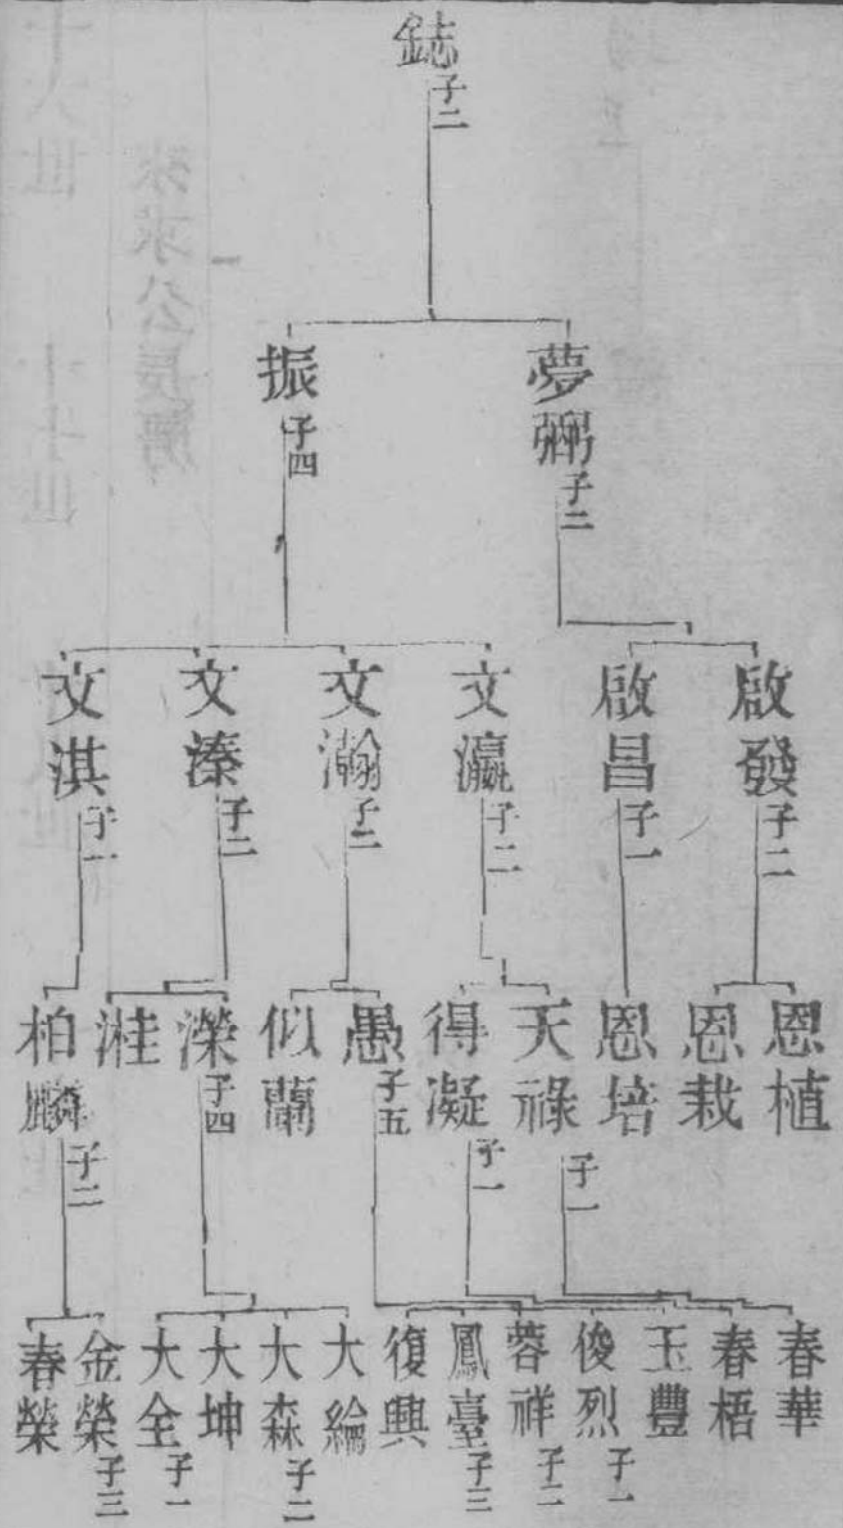 鋕
子二
夢弼
子二
振
子四
啟發
子二
啟昌
子一
文瀛
子二
文瀚
子二
文溱
子二
文淇
子一
恩植
恩栽
恩培
天祿
子一
得凝
子一
愚
子五
似蘭
濚
子四
溎
柏麟
子二
春華
春梧
玉豐
俊烈
子一
蓉祥
子二
鳳臺
子三
復興
大綸
大森
子二
大坤
大全
子一
金榮
子三
春榮